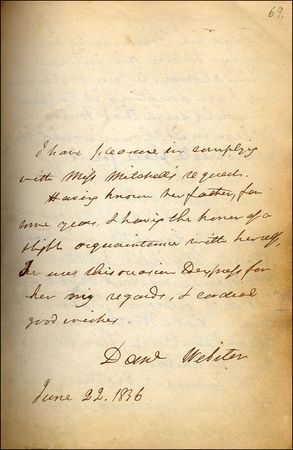 69.
I have pleasure in complying
with Miss Mitchell's request.
Having known her father, for
some years, & having the honor of a
slight acquaintance with herself,
he uses this occasion to express, for
her his regards, & cordial
good wishes.
Danl Webster
June 22. 1836